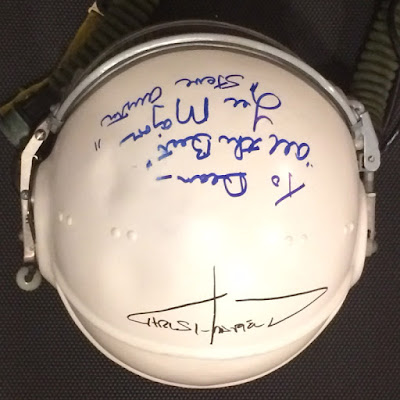 To Dean –
"All the Best"
Lee Majors
"Steve Austin"
CHRIS HADFIELD